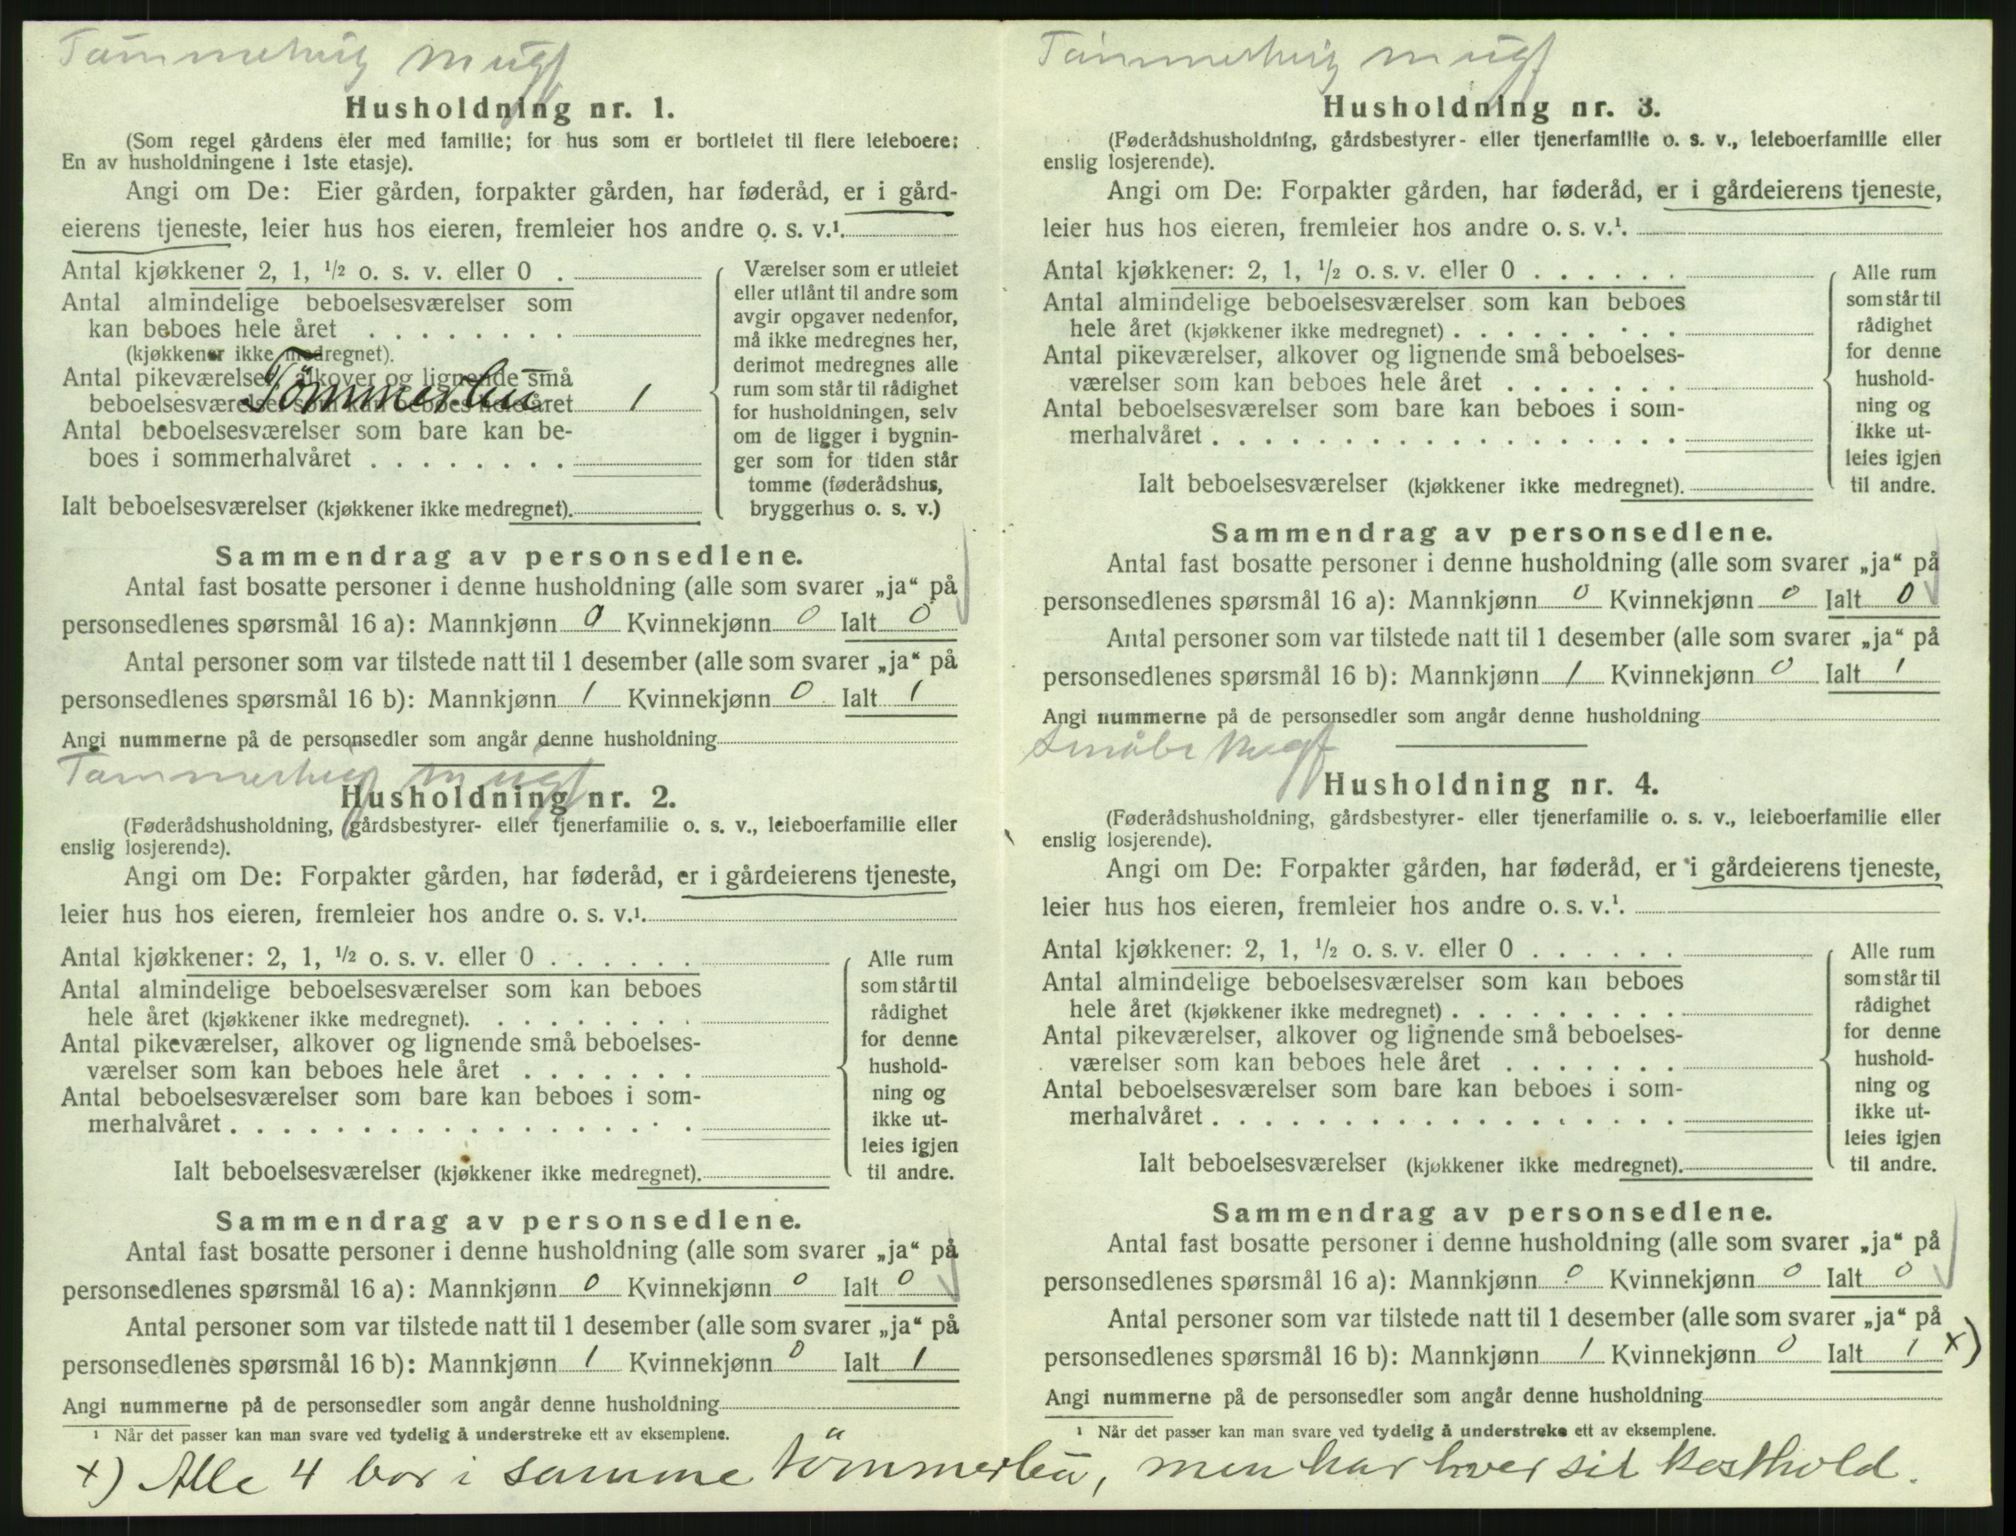 Husholdning nr. 1.
(Som regel gårdens eier med familie; for hus som er bortleiet til flere leieboere:
En av husholdningene i 1ste etasje).
Angi om De: Eier gården, forpakter gården, har føderåd, er i gård-
eierens tjeneste, leier hus hos eieren, fremleier hos andre o. s. v.¹.
Antal kjøkkener 2, 1, ½ o. s. v. eller 0 .
Antal almindelige beboelsesværelser som
kan beboes hele året . . . . . . . .
(kjøkkener ikke medregnet).
Antal pikeværelser, alkover og lignende små
beboelsesværelser som kan beboes hele året 1
Tömmerbu
Antal beboelsesværelser som bare kan be-
boes i sommerhalvåret . . . . . . . .
Ialt beboelsesværelser (kjøkkener ikke medregnet).
Værelser som er utleiet
eller utlånt til andre som
avgir opgaver nedenfor,
må ikke medregnes her,
derimot medregnes alle
rum som står til rådighet
for husholdningen, selv
om de ligger i bygnin-
ger som for tiden står
tomme (føderådshus,
bryggerhus o. s. v.)
Sammendrag av personsedlene.
Antal fast bosatte personer i denne husholdning (alle som svarer „ja“ på
personsedlenes spørsmål 16 a): Mannkjønn 0 Kvinnekjønn 0 Ialt 0
Antal personer som var tilstede natt til 1 desember (alle som svarer „ja“ på
personsedlenes spørsmål 16 b): Mannkjønn 1 Kvinnekjønn 0 Ialt 1
Angi nummerne på de personsedler som angår denne husholdning
Husholdning nr. 2.
(Føderådshusholdning, gårdsbestyrer- eller tjenerfamilie o. s. v., leieboerfamilie eller
enslig losjerende).
Angi om De: Forpakter gården, har føderåd, er i gårdeierens tjeneste,
leier hus hos eieren, fremleier hos andre o. s. v.¹.
Antal kjøkkener: 2, 1, ½ o. s. v. eller 0 . . . . . .
Antal almindelige beboelsesværelser som kan beboes
hele året (kjøkkener ikke medregnet). . . . . . . . .
Antal pikeværelser, alkover og lignende små beboelses-
værelser som kan beboes hele året . . . . . . .
Antal beboelsesværelser som bare kan beboes i som-
merhalvåret . . . . . . . . . . . . . . . . . .
Ialt beboelsesværelser (kjøkkener ikke medregnet).
Alle rum
som står til
rådighet
for denne
hushold-
ning og
ikke ut-
leies igjen
til andre.
Sammendrag av personsedlene.
Antal fast bosatte personer i denne husholdning (alle som svarer „ja“ på
personsedlenes spørsmål 16 a): Mannkjønn 0 Kvinnekjønn 0 Ialt 0
Antal personer som var tilstede natt til 1 desember (alle som svarer „ja“ på
personsedlenes spørsmål 16 b): Mannkjønn 1 Kvinnekjønn 0 Ialt 1
Angi nummerne på de personsedler som angår denne husholdning
¹ Når det passer kan man svare ved tydelig å understreke ett av eksemplene.
Husholdning nr. 3.
(Føderådshusholdning, gårdsbestyrer- eller tjenerfamilie o. s. v., leieboerfamilie eller
enslig losjerende).
Angi om De: Forpakter gården, har føderåd, er i gårdeierens tjeneste,
leier hus hos eieren, fremleier hos andre o. s. v.¹.
Antal kjøkkener: 2, 1, ½ o. s. v. eller 0 . . . . . .
Antal almindelige beboelsesværelser som kan beboes
hele året (kjøkkener ikke medregnet) . . . . . . . . .
Antal pikeværelser, alkover og lignende små beboelses-
værelser som kan beboes hele året . . . . . . .
Antal beboelsesværelser som bare kan beboes i som-
merhalvåret . . . . . . . . . . . . . . . . . .
Ialt beboelsesværelser (kjøkkener ikke medregnet).
Alle rum
som står til
rådighet
for denne
hushold-
ning og
ikke ut-
leies igjen
til andre.
Sammendrag av personsedlene.
Antal fast bosatte personer i denne husholdning (alle som svarer „ja“ på
personsedlenes spørsmål 16 a): Mannkjønn 0 Kvinnekjønn 0 Ialt 0
Antal personer som var tilstede natt til 1 desember (alle som svarer „ja“ på
personsedlenes spørsmål 16 b): Mannkjønn 1 Kvinnekjønn 0 Ialt 1
Angi nummerne på de personsedler som angår denne husholdning
Husholdning nr. 4.
(Føderådshusholdning, gårdsbestyrer- eller tjenerfamilie o. s. v., leieboerfamilie eller
enslig losjerende).
Angi om De: Forpakter gården, har føderåd, er i gårdeierens tjeneste,
leier hus hos eieren, fremleier hos andre o. s. v.¹.
Antal kjøkkener: 2, 1, ½ o. s. v. eller 0 . . . . . .
Antal almindelige beboelsesværelser som kan beboes
hele året (kjøkkener ikke medregnet) . . . . . . . . .
Antal pikeværelser, alkover og lignende små beboelses-
værelser som kan beboes hele året . . . . . . .
Antal beboelsesværelser som bare kan beboes i som-
merhalvåret . . . . . . . . . . . . . . . . . .
Ialt beboelsesværelser (kjøkkener ikke medregnet).
Alle rum
som står til
rådighet
for denne
hushold-
ning og
ikke ut-
leies igjen
til andre.
Sammendrag av personsedlene.
Antal fast bosatte personer i denne husholdning (alle som svarer „ja“ på
personsedlenes spørsmål 16 a): Mannkjønn 0 Kvinnekjønn 0 Ialt 0
Antal personer som var tilstede natt til 1 desember (alle som svarer „ja“ på
personsedlenes spørsmål 16 b): Mannkjønn 1 Kvinnekjønn 0 Ialt 1 x)
Angi nummerne på de personsedler som angår denne husholdning
¹ Når det passer kan man svare ved tydelig å understreke ett av eksemplene.
x) Alle 4 bor i samme tömmerbu, men har hver sit kosthold.